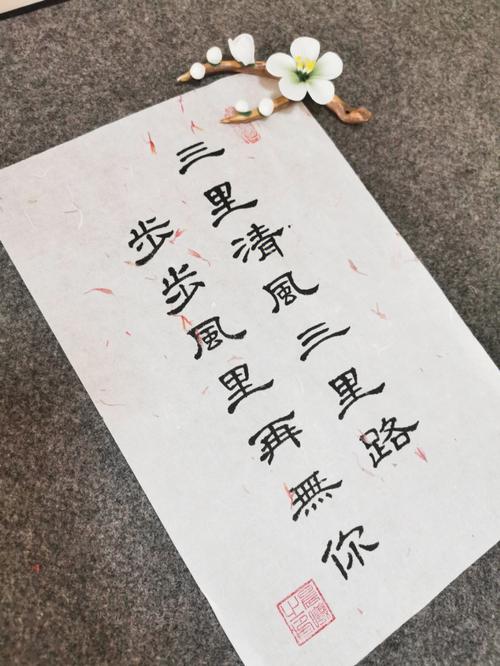 三里清風三里路
步步風里再無你